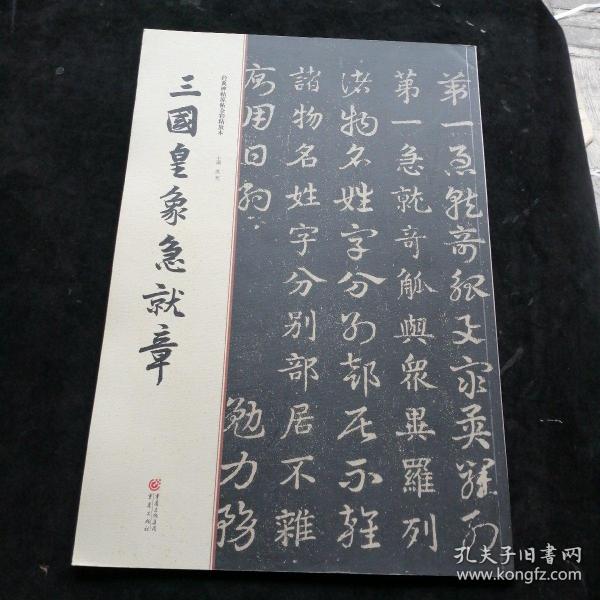 三國皇象急就章
第一急就奇觚與衆異羅列
第一急就奇觚與衆異羅列
諸物名姓字分别部居不雜
諸物名姓字分别部居不雜
廁用日約
勉力務
重庆出版集团
重庆出版社
孔夫子旧书网
www.kongfz.com